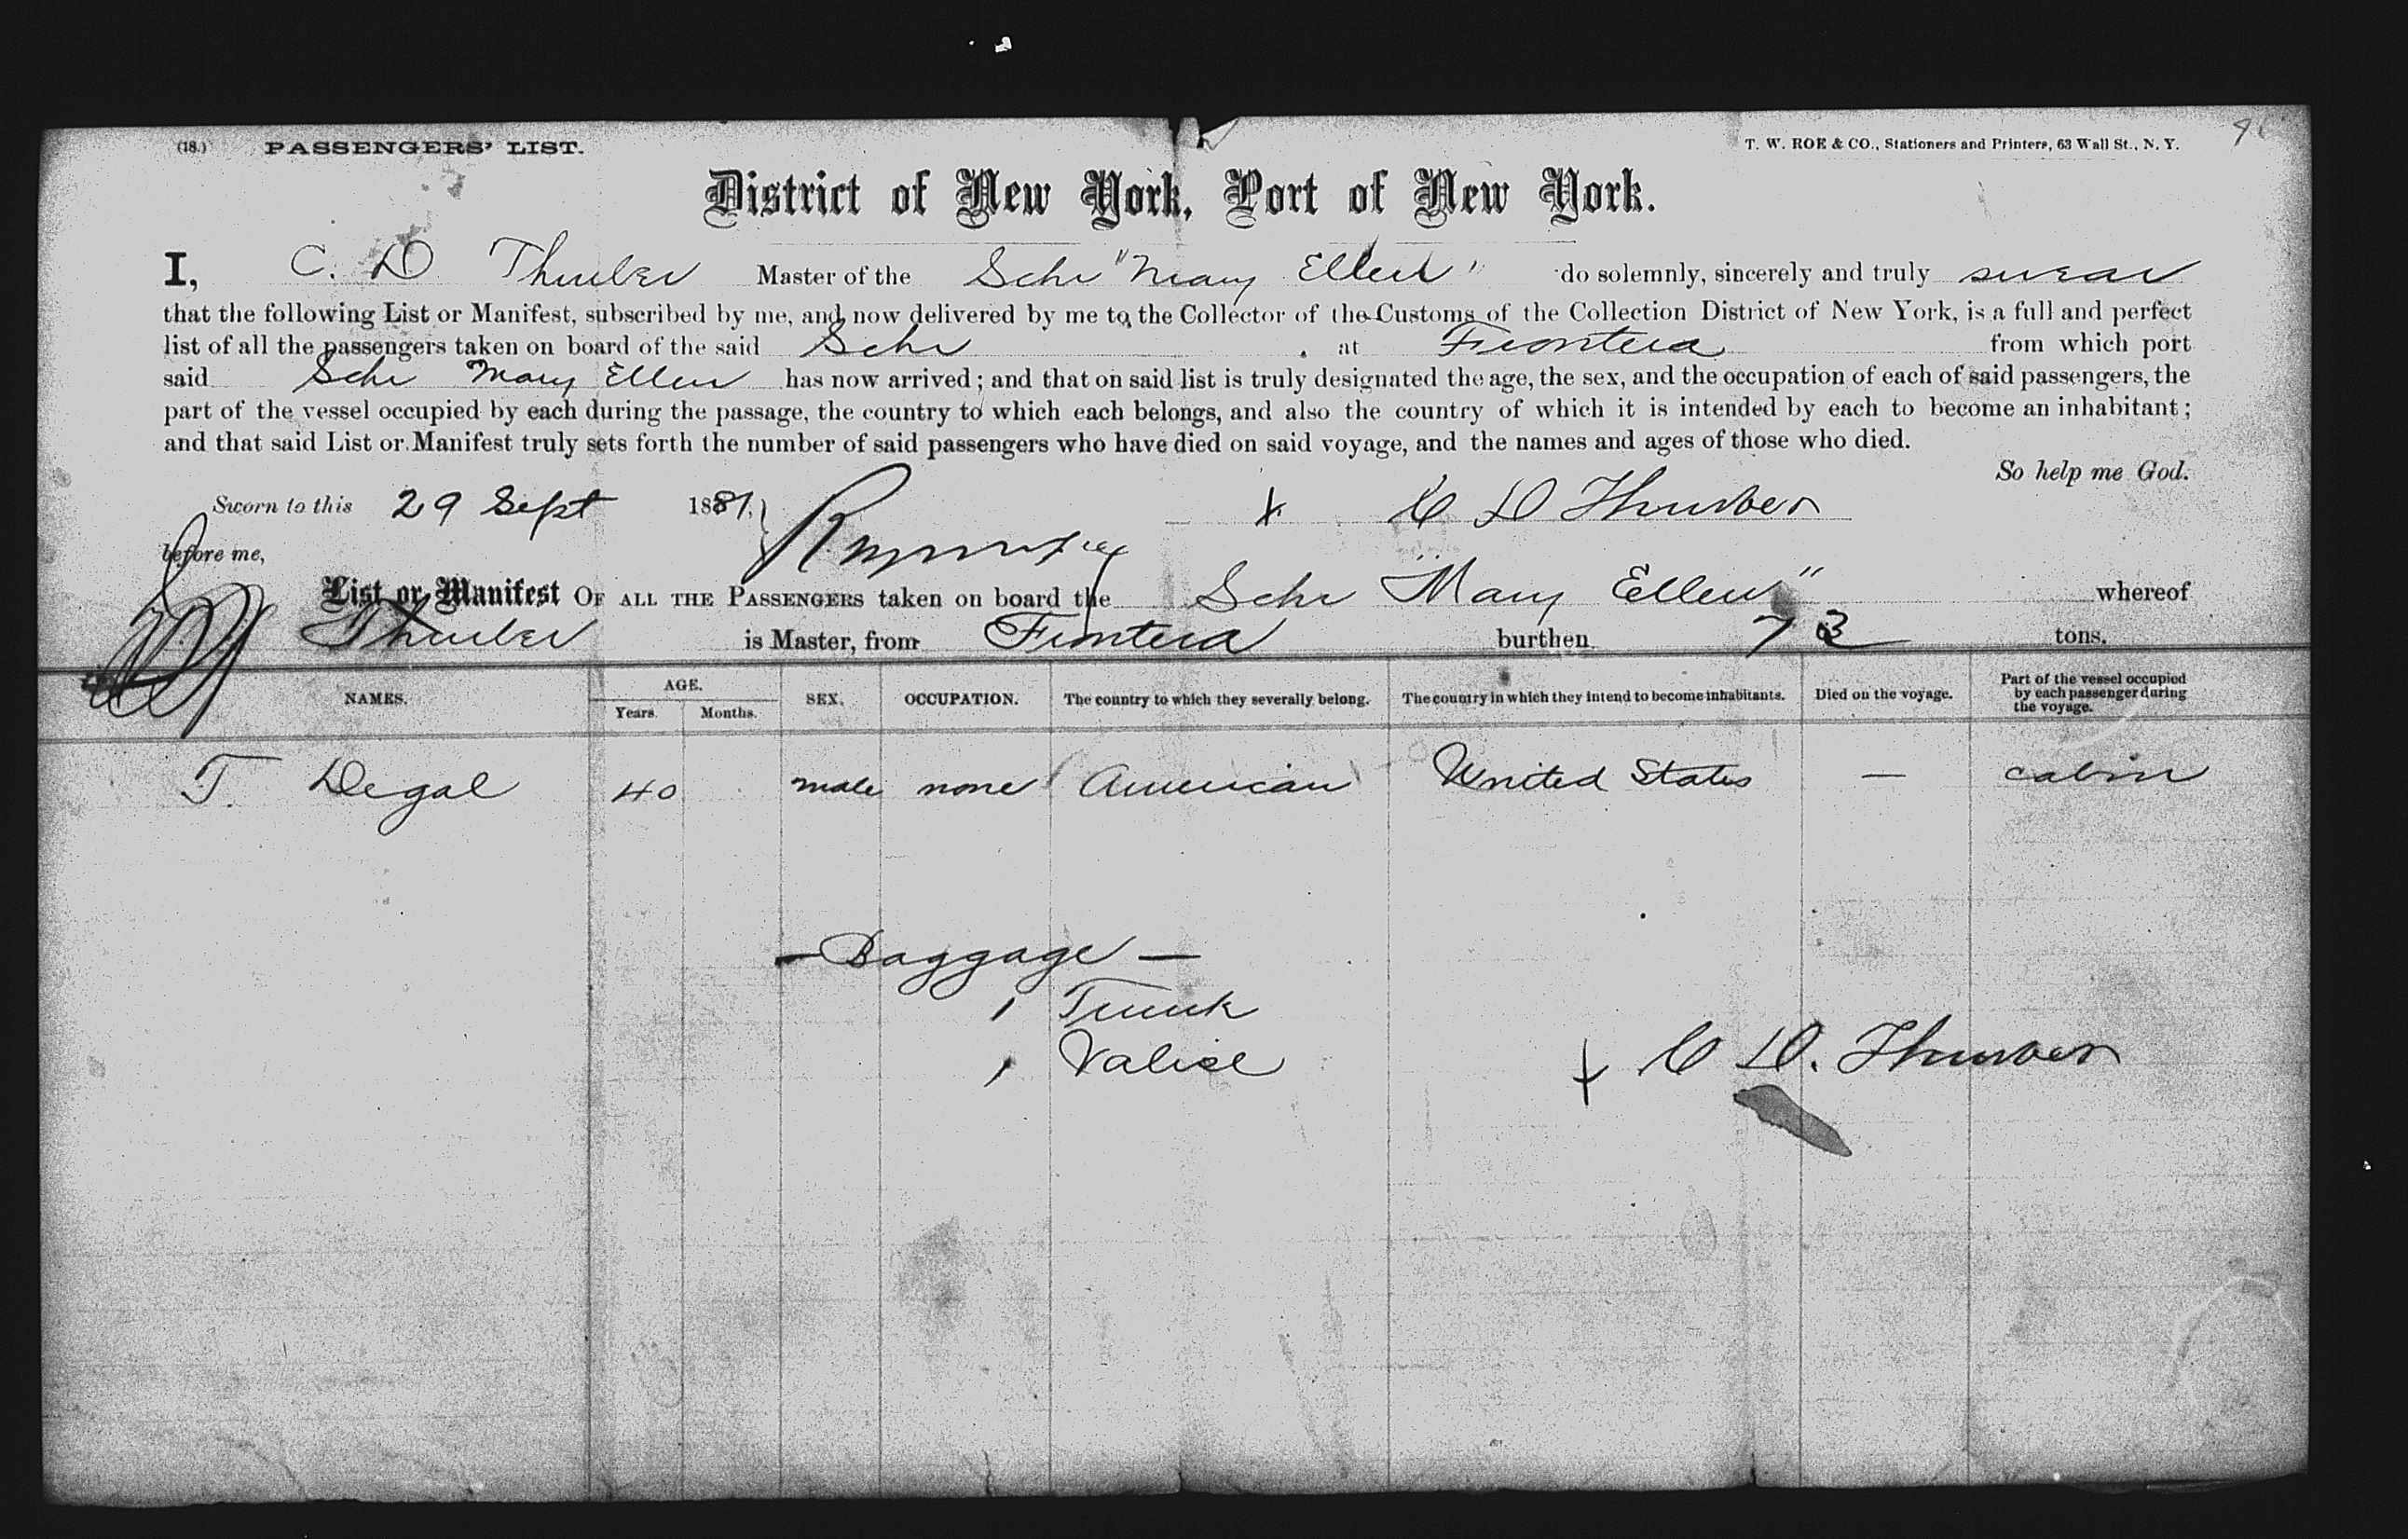 (18.) PASSENGERS' LIST. T. W. ROE & CO., Stationers and Printers, 63 Wall St., N. Y.
District of New York, Port of New York.
I, C. D Thurber Master of the Schr "Mary Ellen" do solemnly, sincerely and truly swear
that the following List or Manifest, subscribed by me, and now delivered by me to the Collector of the Customs of the Collection District of New York, is a full and perfect
list of all the passengers taken on board of the said Schr at Frontera from which port
said Schr Mary Ellen has now arrived; and that on said list is truly designated the age, the sex, and the occupation of each of said passengers, the
part of the vessel occupied by each during the passage, the country to which each belongs, and also the country of which it is intended by each to become an inhabitant;
and that said List or Manifest truly sets forth the number of said passengers who have died on said voyage, and the names and ages of those who died.
So help me God.
Sworn to this 29 Sept 1881, C D Thurber
before me,
List or Manifest OF ALL THE PASSENGERS taken on board the Schr "Mary Ellen" whereof
Thurber is Master, from Frontera burthen 73 tons.
NAMES. AGE. Years. Months. SEX. OCCUPATION. The country to which they severally belong. The country in which they intend to become inhabitants. Died on the voyage. Part of the vessel occupied by each passenger during the voyage.
T. Degal 40 male none American United States — cabin
— Baggage —
1 Trunk
1 Valise
C D. Thurber